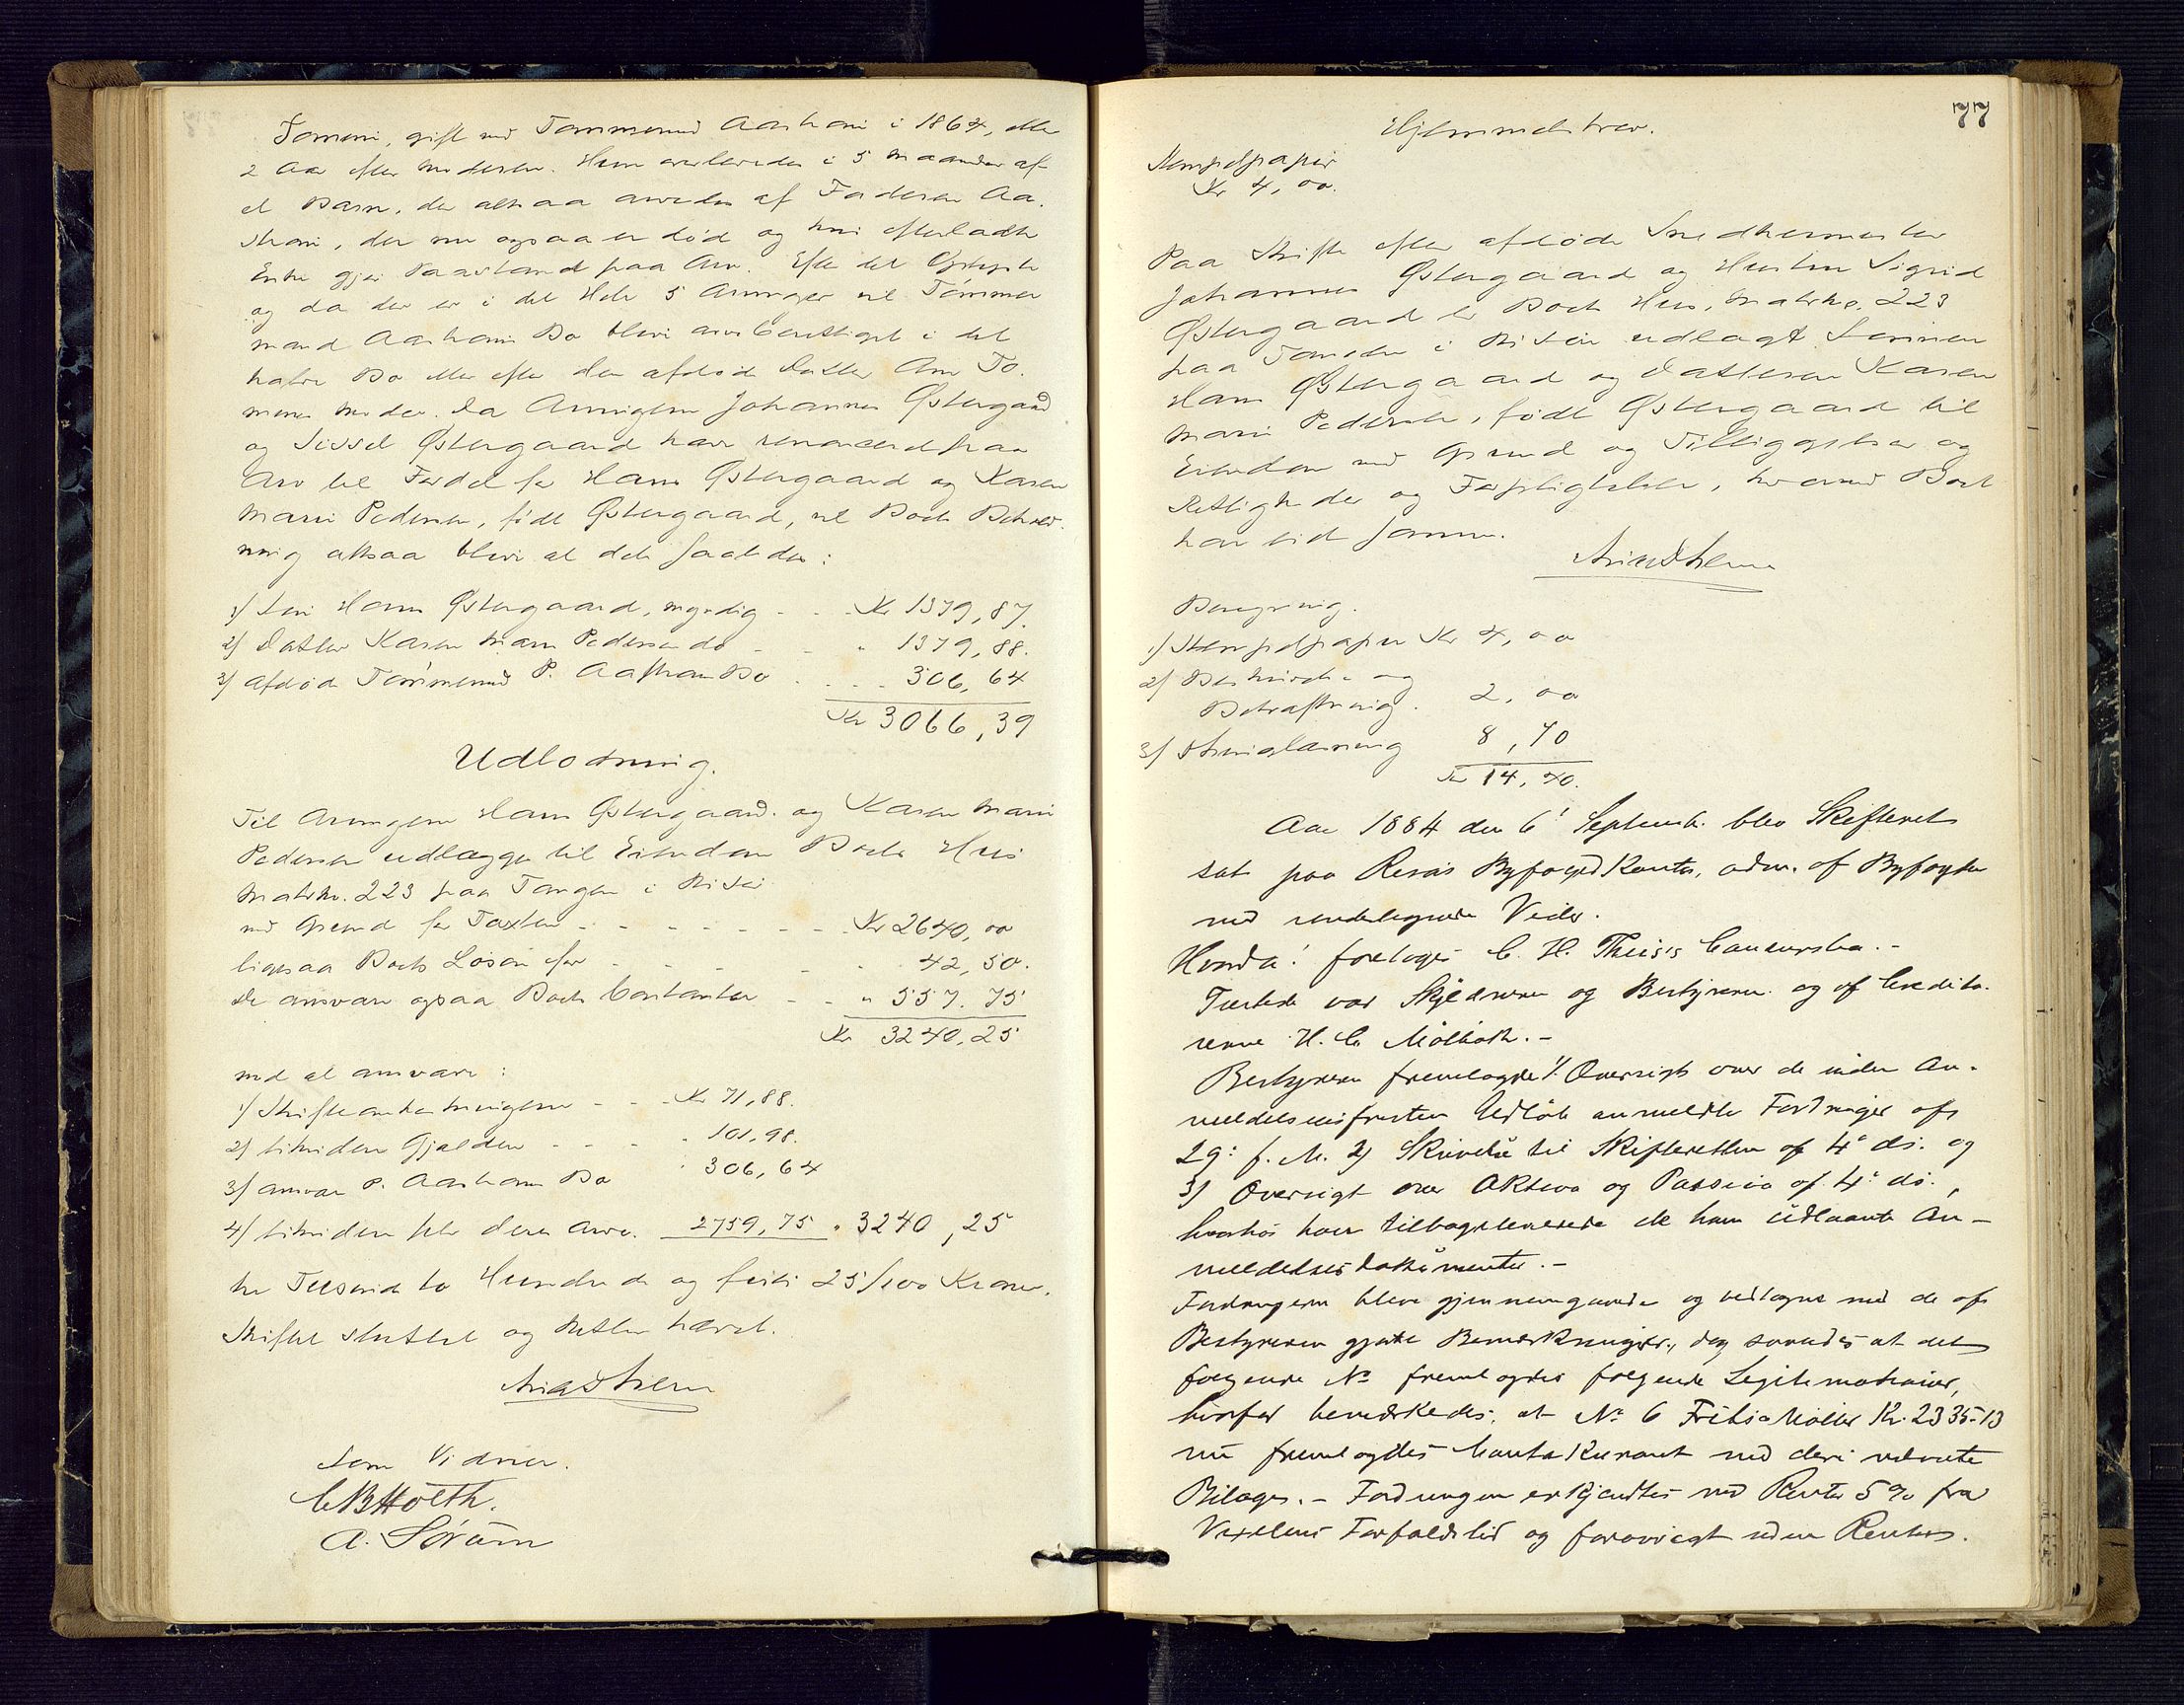 gift med Tommesend i 1864, eller
2 Aar efter Moderen. Hun overlevedes i 5 Maaneder af
et Barn, der altsaa arvedes af Faderen Aa-
, der nu ogsaa er død og hvis efterladte
Enke gjør Paastand paa Arv. Efter det Oplyste
og da der er i det Hele 5 Arvinger vil Tommes-
Bo blive arveberettiget i det
halve Bo eller efter den afdøde Datter To-
mines Moder. Da Arvingerne Johannes Østergaard
og Sissel Østergaard have renonceret paa
Arv til Fordel for Hans Østergaard og Karen
Marie Pedersen, født Østergaard, vil Boets Behold-
ning altsaa blive at dele saaledes:
1) Søn Hans Østergaard, myndig - - - Kr 1379,87.
2) Datter Karen Marie Pedersen do - - - " 1379,88.
3) afdøde P. Bo - - - 306,64
Kr 3066,39
Udlodning.
Til Arvingerne Hans Østergaard og Karen Marie
Pedersen udlægges til Eiendom Boets Hus
Matr No. 223 paa Tangen i Risør
med Grund for Taxten - - - - - - - Kr 2640,00
ligesaa Boets Løsøre for - - - - - 42,50.
de ansvare ogsaa Boets Contanter - - " 557.75
Kr 3240,25
med at ansvare:
1) Skifteomkostningerne - - - Kr 71,88.
2) likvidere Gjælden - - - - 101,98.
3) ansvare P. Bo " 306,64
4) likvidere selv deres Arv. 2759,75 " 3240,25
tre Tusinde to Hundrede og firti 25/100 Kroner.
Skiftet sluttet og Retten hævet.
Som Vidner.
C B Holth.
A. Sørum
77
Hjemmelsbrev.
Stempelpapir
Kr 4,00.
Paa Skifte efter afdøde Snedkermester
Johannes Østergaard og Hustru Sigrid
Østergaard er Boets Hus, Matr No. 223
paa Tangen i Risør udlagt Sønnen
Hans Østergaard og Datteren Karen
Marie Pedersen, født Østergaard til
Eiendom med Grund og Tilliggelser og
Rettigheder og Forpligtelser, hvormed Boet
har eiet samme.
Beregning.
1) Stempelpapir Kr 4,00
2) Beskrivelse og
Bekræftning. 2,00
3) Thinglæsning 8,40
Kr 14,40.
Aar 1884 den 6' Septemb. blev Skifteret
sat paa Risørs Byfogedkontor, adm. af Byfogden
med undertegnede Vidner.
Hvorda: foretoges C. H. Theis's Concursbo.-
Tilstede var Skyldneren og Bestyreren og af Credito-
rerne H. C. Mølbach.-
Bestyreren fremlagde 1. Oversigt over de inden An-
meldelsesfristens Udløb anmeldte Fordringer af
29: f. M. 2) Skrivelse til Skifteretten af 4' ds. og
3) Oversigt over Aktiva og Passiva af 4' ds.,
hvorhos han tilbageleverede de ham udlaante An-
meldelsesdokumenter.-
Fordringerne bleve gjennemgaaede og vedtagne med de af
Bestyreren gjorte Bemærkninger, dog saaledes at det
følgende No fremlagdes følgende Legitimationer,
hvorfor bemærkedes, at No 6 Møller Kr. 2335-13
nu fremlagdes Contakurant med deri nævnte
Bilager.- Fordringen erkjendtes med Renter 5% fra
Vexelens Forfaldstid og forøvrigt uden Renter.